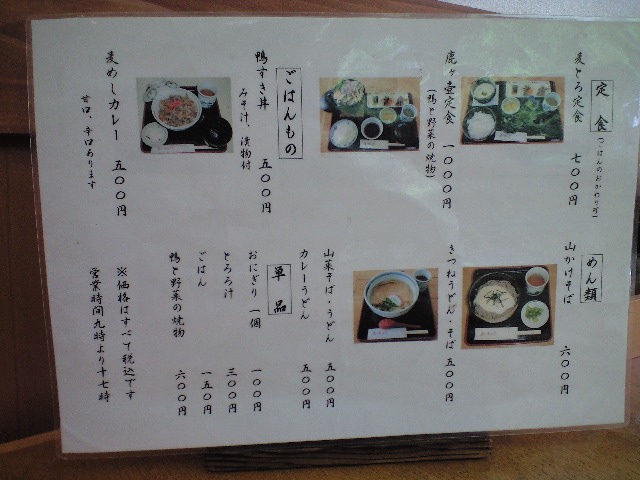 定食
(ごはんのおかわり可)
麦とろ定食 七〇〇円
鹿ヶ壺定食 一〇〇〇円
(鴨と野菜の焼物)
ごはんもの
鴨すき丼 五〇〇円
みそ汁、漬物付
麦めしカレー 五〇〇円
甘口、辛口あります
めん類
山かけそば 六〇〇円
きつねうどん・そば 五〇〇円
山菜そば・うどん 五〇〇円
カレーうどん 五〇〇円
単品
おにぎり 一個 一〇〇円
とろろ汁 三〇〇円
ごはん 一五〇円
鴨と野菜の焼物 六〇〇円
※価格はすべて税込です
営業時間九時より十七時